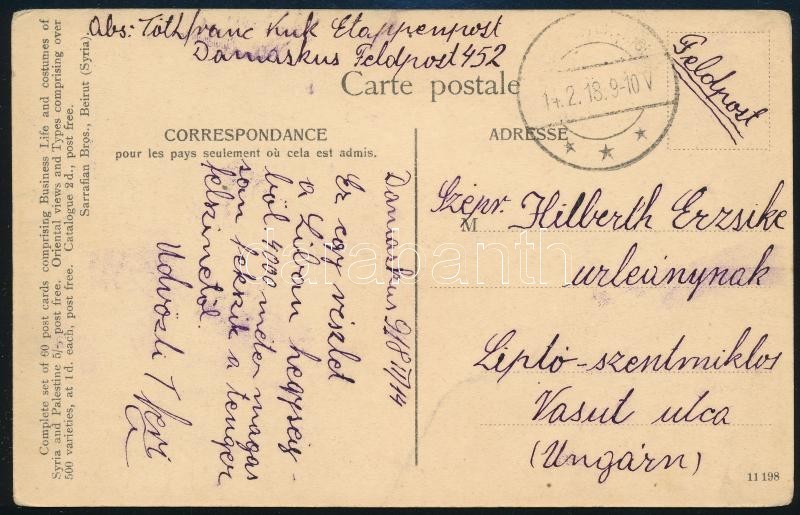 Abs: Tóth Franc KuK Etappenpost
Damaskus Feldpost 452
Carte postale
14.2.18.9-10V
Feldpost
CORRESPONDANCE
pour les pays seulement où cela est admis.
ADRESSE
Damaskus 918 II/14
Ez egy részlet
a Libán hegység-
ből. 4000 méter magas
san fekszik a tenger
felszinétől.
Üdvözli
M
Szépr. Hilberth Erzsike
urleánynak
Liptó-szentmiklos
Vasut utca
(Ungárn)
11198
Complete set of 60 post cards comprising Business Life and costumes of
Syria and Palestine 5/-, post free. Oriental views and Types comprising over
500 varieties, at 1d. each, post free. Catalogue 2d., post free.
Sarrafian Bros., Beirut (Syria).
darabanth